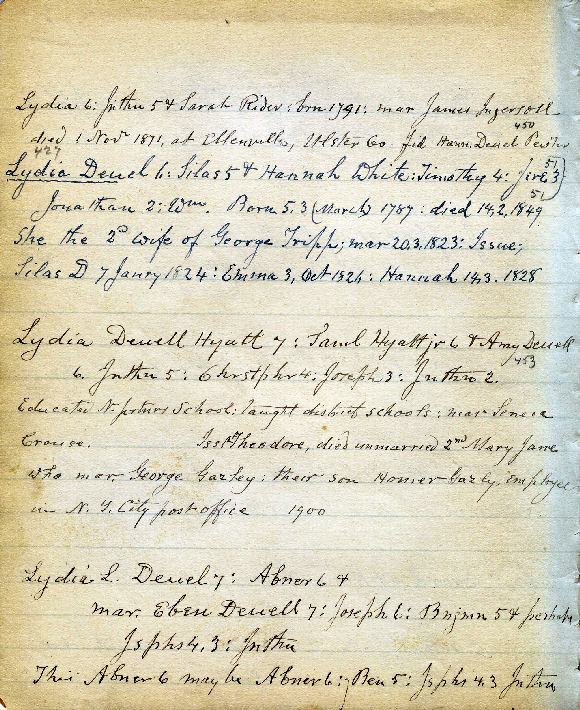 Lydia 6: Jnthn 5 & Sarah Rider: brn 1791: mar James Ingersoll
died 1 Novr 1871, at Ellenville, Ulster Co. fid Hann. Deuel
450
427
Lydia Deuel 6: Silas 5 & Hannah White: Timothy 4: Jere 3}
51
Jonathan 2: Wm. Born 5.3 (March) 1787: died 14,2,1849.
51
She the 2d wife of George Tripp; mar 20.3.1823: Issue;
Silas D 7 Janry 1824: Emma 3, Oct 1826: Hannah 14,3. 1828
Lydia Deuell Hyatt 7: Saml Hyatt jr 6 & Amy Deuell
453
6. Jnthn 5: Chrstphr 4: Joseph 3: Jnthn 2.
Educatd N. prtnrs School: taught district schools: mar Seneca
Crouse. Iss Theodore, died unmarried 2nd Mary Jane
who mar. George Gazley: their son Homer Gazley, employee
in N. Y. City post office 1900
Lydia L. Deuel 7: Abner 6 &
mar. Eben Deuell 7: Joseph 6: Bnjmn 5 & perhaps
Jsphs 4,3: Jnthn
This Abner 6 may be Abner 6: Ben 5: Jsphs 4.3 Jnthn